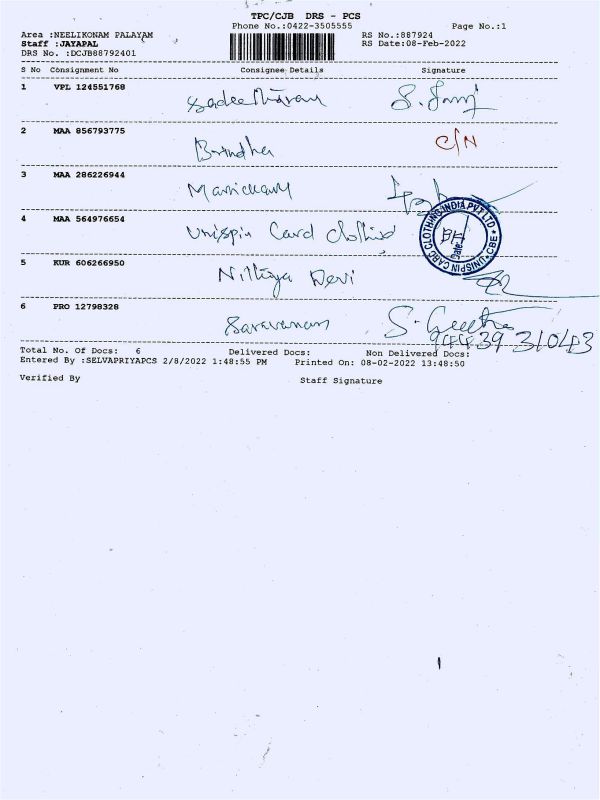 TPC/CJB DRS - PCS
Phone No.:0422-3505555 Page No.:1
Area :NEELIKONAM PALAYAM RS No.:887924
Staff :JAYAPAL RS Date:08-Feb-2022
DRS No. :DCJB88792401
S No Consignment No Consignee Details Signature
1 VPL 124551768
2 MAA 856793775 Brindha C/N
3 MAA 286226944 Manickam
4 MAA 564976654 Unispin Card Clothing
UNISPIN CARD CLOTHING INDIA PVT LTD * CBE *
Date:
5 KUR 606266950 Nithya Devi
6 PRO 12798328 Saravanan S. Geetha
31043
Total No. Of Docs: 6 Delivered Docs: Non Delivered Docs:
Entered By :SELVAPRIYAPCS 2/8/2022 1:48:55 PM Printed On: 08-02-2022 13:48:50
Verified By Staff Signature